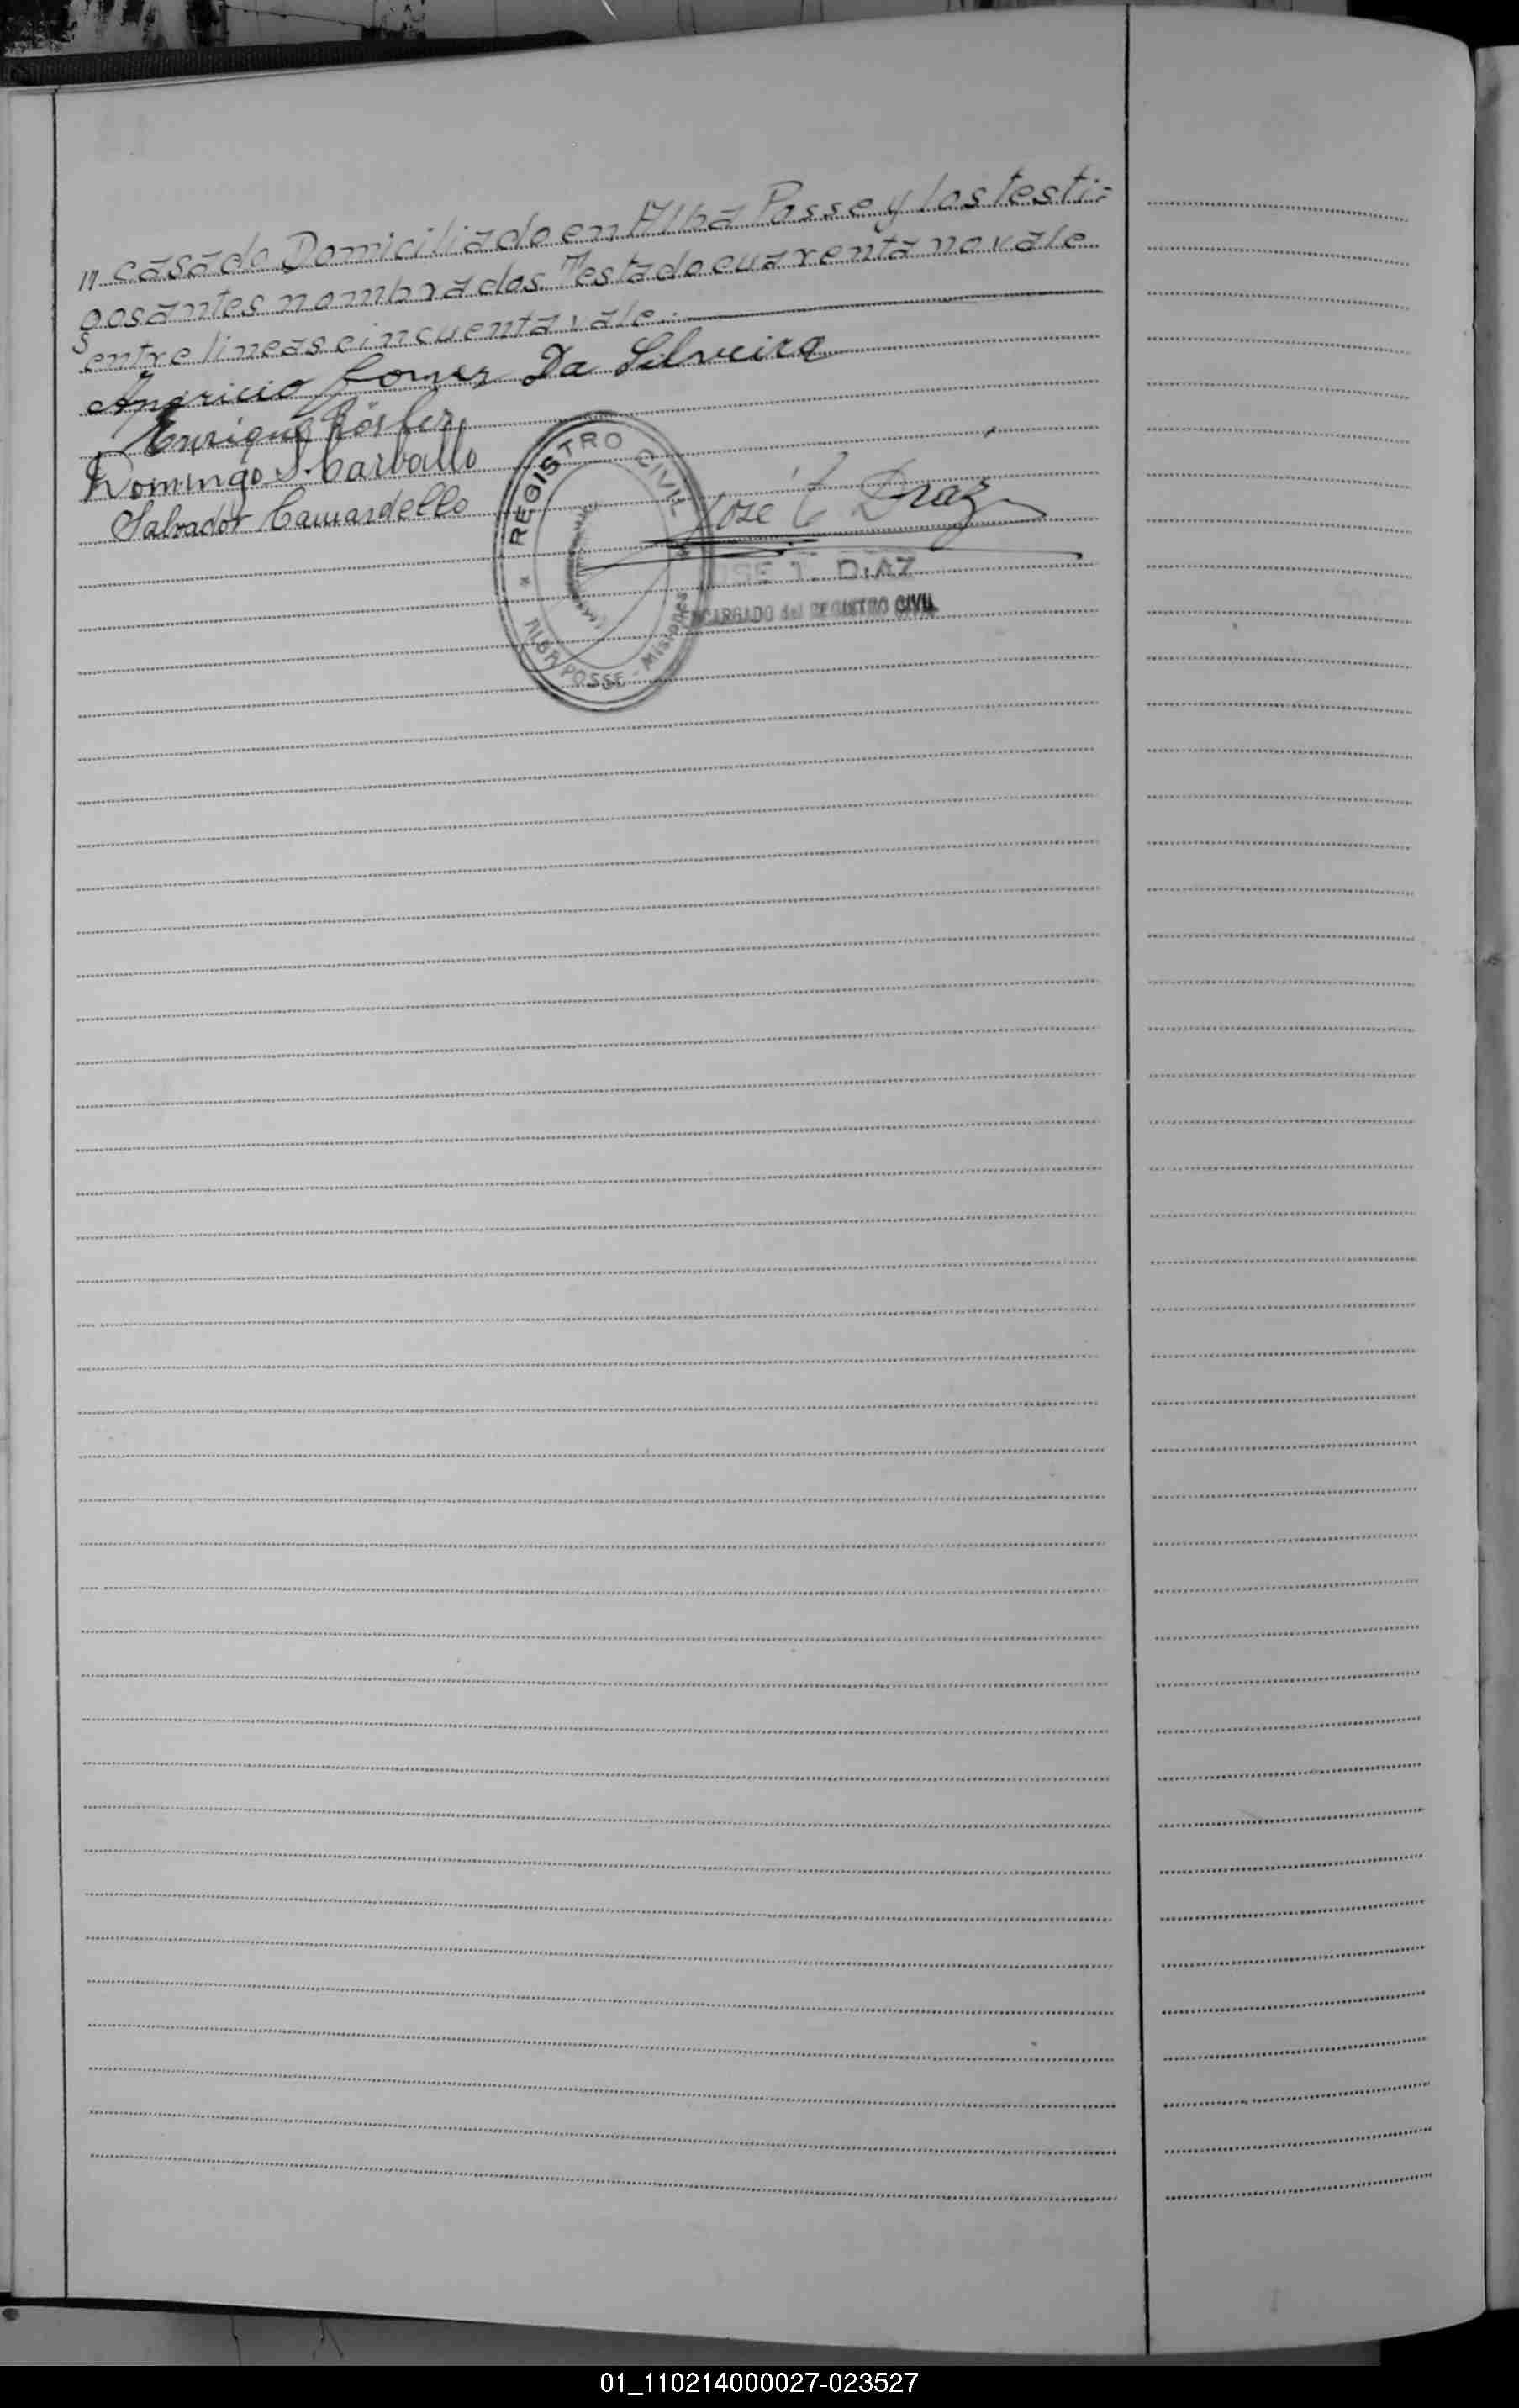 casado Domiciliado en Alba Posse y los testi=
gos antes nombrados. Testado cuarenta no vale
entre lineas cincuenta vale.
Aparicio Gomes Da Silveira
Enrique Rösler
Domingo S. Carballo
Salvador Camardello
José T. Diaz
REGISTRO CIVIL
ALBA POSSE - Misiones
JOSE T. DIAZ
ENCARGADO del REGISTRO CIVIL
01_110214000027-023527